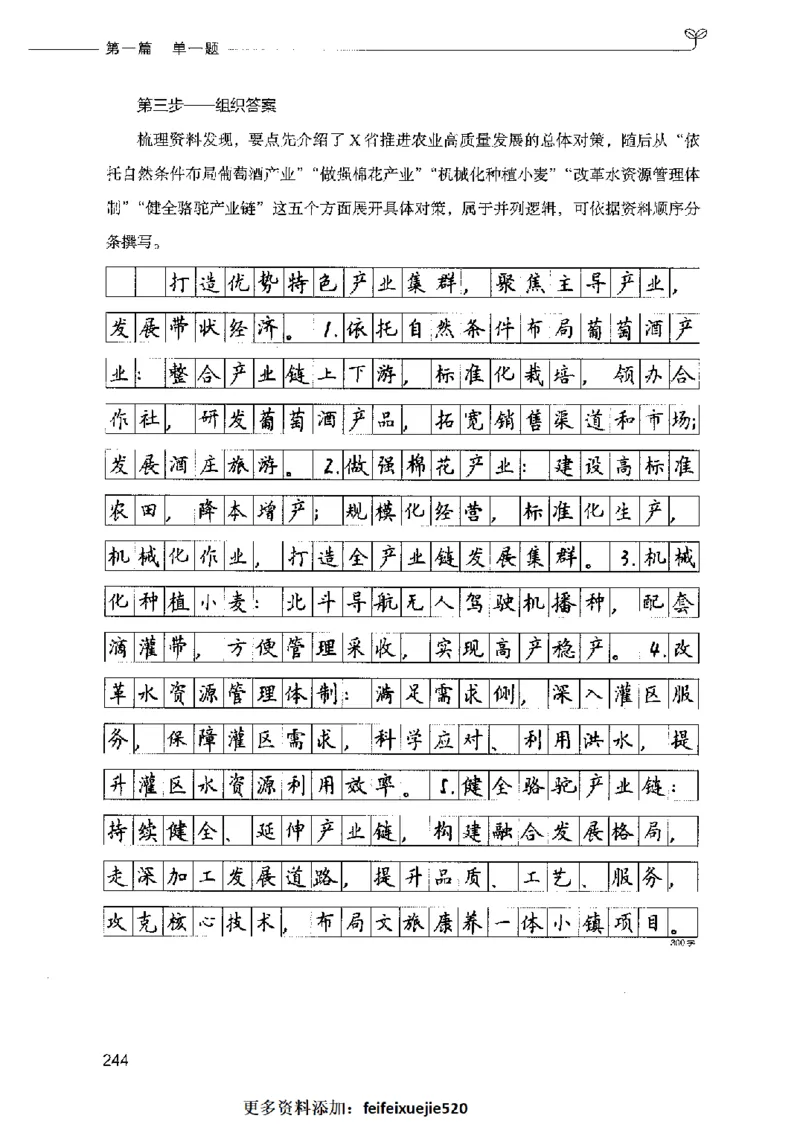 第一篇 单一题
第三步——组织答案
梳理资料发现，要点先介绍了X省推进农业高质量发展的总体对策，随后从“依
托自然条件布局葡萄酒产业”“做强棉花产业”“机械化种植小麦”“改革水资源管理体
制”“健全骆驼产业链”这五个方面展开具体对策，属于并列逻辑，可依据资料顺序分
条撰写。
打造优势特色产业集群，聚焦主导产业，
发展带状经济。1.依托自然条件布局葡萄酒产
业：整合产业链上下游，标准化栽培，领办合
作社，研发葡萄酒产品，拓宽销售渠道和市场；
发展酒庄旅游。2.做强棉花产业：建设高标准
农田，降本增产；规模化经营，标准化生产，
机械化作业，打造全产业链发展集群。3.机械
化种植小麦：北斗导航无人驾驶机播种，配套
滴灌带，方便管理采收，实现高产稳产。4.改
革水资源管理体制：满足需求侧，深入灌区服
务，保障灌区需求，科学应对、利用洪水，提
升灌区水资源利用效率。5.健全骆驼产业链：
持续健全、延伸产业链，构建融合发展格局，
走深加工发展道路，提升品质、工艺、服务，
攻克核心技术，布局文旅康养一体小镇项目。
300字
244
更多资料添加：feifeixuejie520